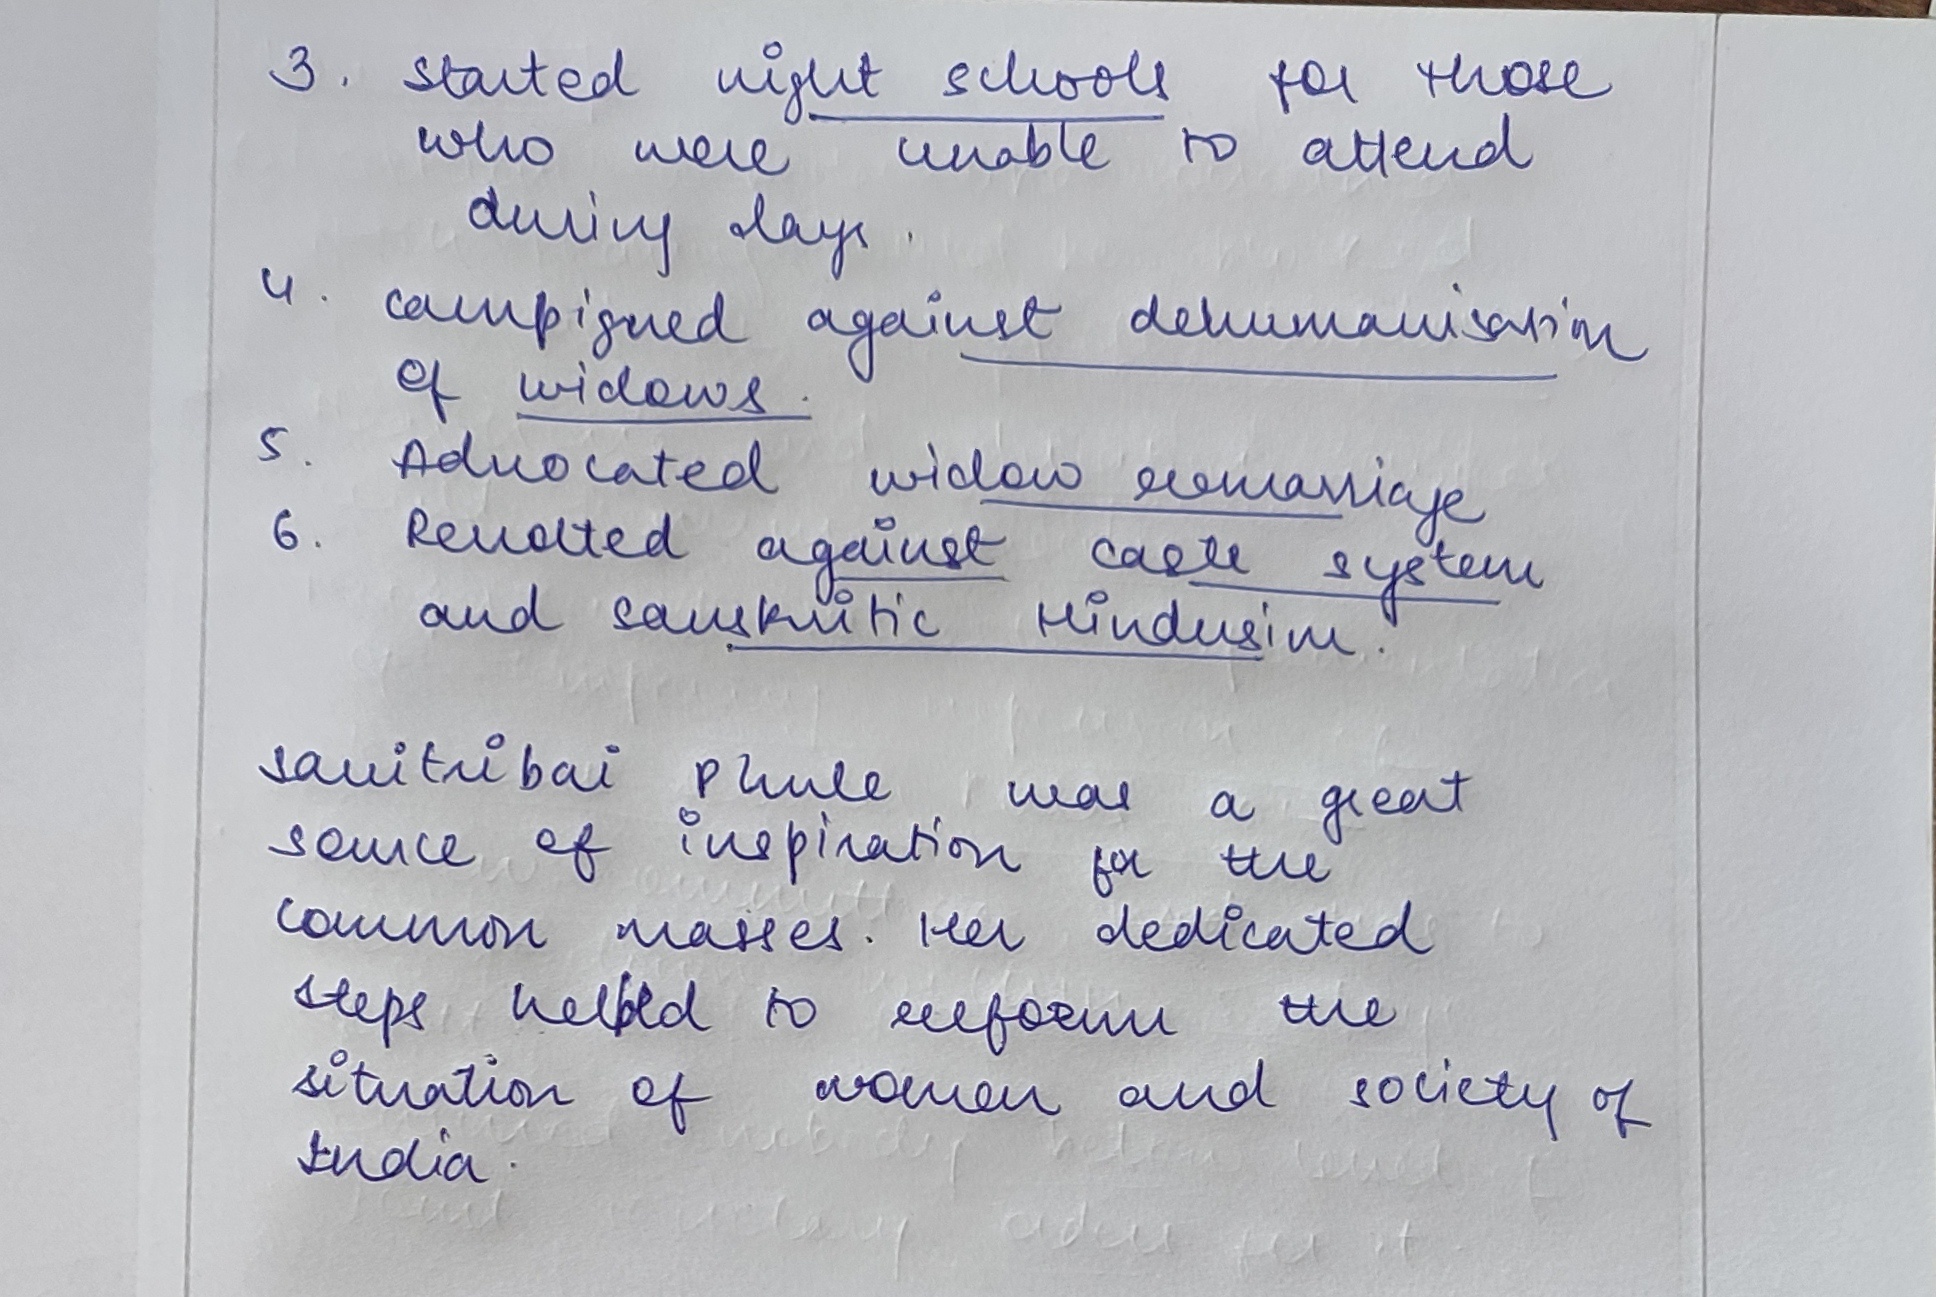 3. started night schools for those
who were unable to attend
during days.
4. campigned against dehumanisation
of widows.
5. Advocated widow remarriage
6. Revolted against caste system
and sanskritic Hindusim.
savitribai Phule was a great
source of inspiration for the
common masses. Her dedicated
steps helped to reform the
situation of women and society of
India.